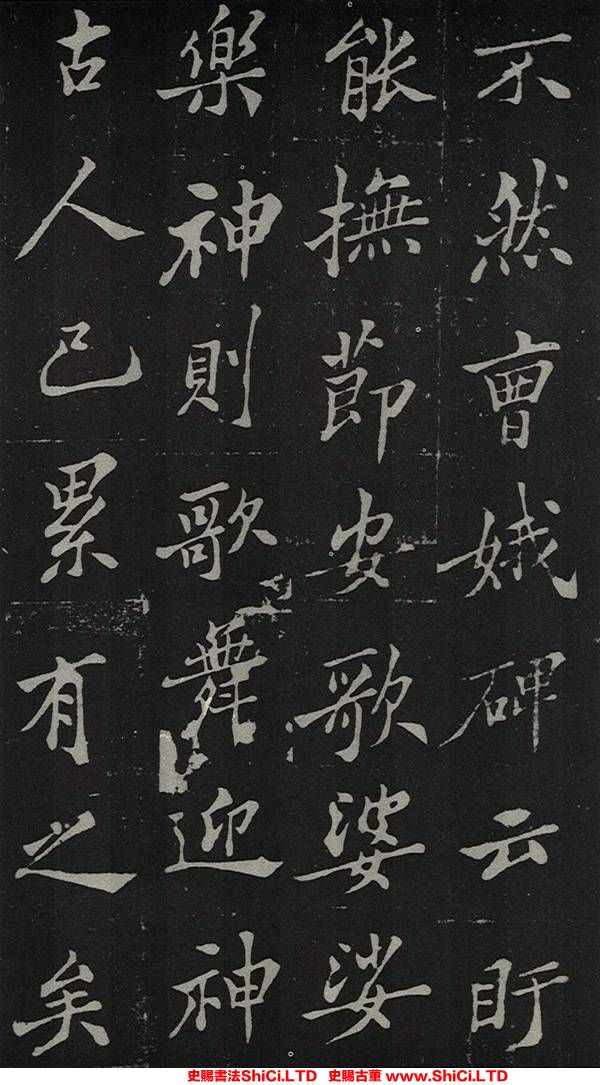 不然曹娥碑云盱
能撫節安歌婆娑
樂神則歌舞迎神
古人已累有之矣
史賜書法ShiCi.LTD 史賜古董 www.ShiCi.LTD